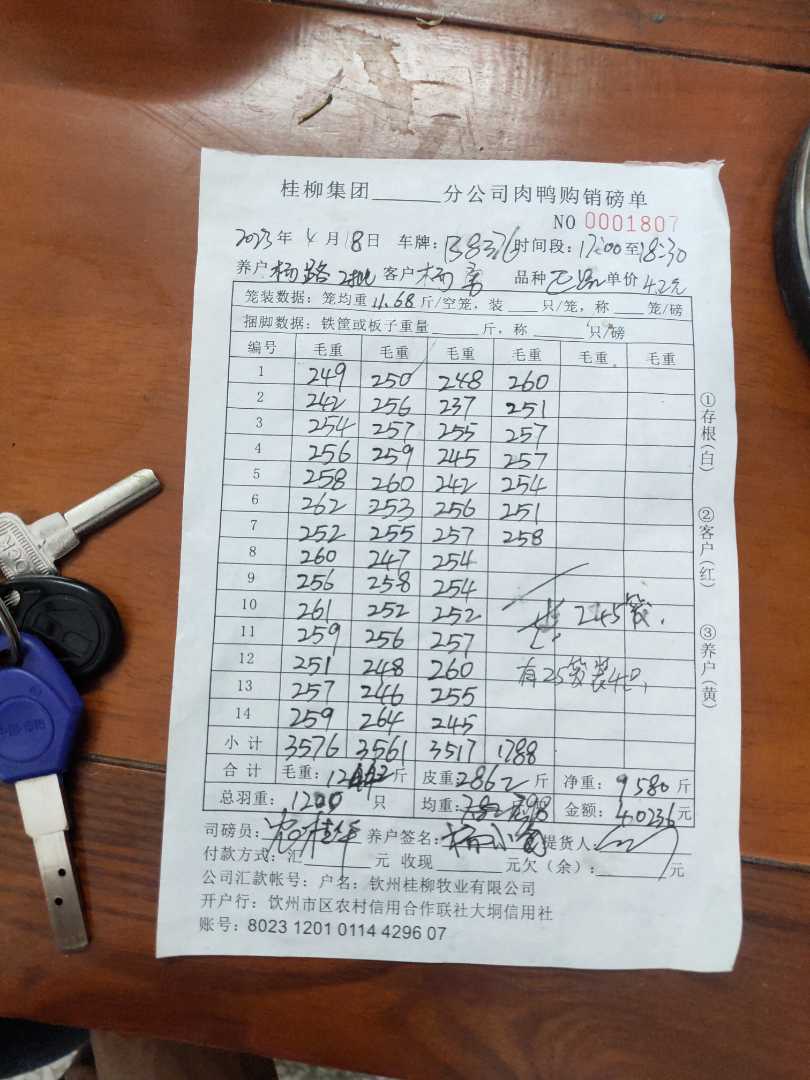 桂柳集团______分公司肉鸭购销磅单
NO 0001807
2023年 4 月 18 日 车牌: B8376 时间段: 17:00 至 18:30
养户 杨路 2批 客户 杨 品种 单价 4.2元
笼装数据: 笼均重 11.68 斤/空笼, 装 ___ 只/笼, 称 ___ 笼/磅
捆脚数据: 铁筐或板子重量______斤, 称______只/磅
编号 毛重 毛重 毛重 毛重 毛重 毛重
1 249 250 248 260
2 242 256 237 251
3 254 257 255 257
4 256 259 245 257
5 258 260 242 254
6 262 253 256 251
7 252 255 257 258
8 260 247 254
9 256 258 254
10 261 252 252 245笼.
11 259 256 257
12 251 248 260 有25笼装4只,
13 257 246 255
14 259 264 245
小计 3576 3561 3517 1788
合计 毛重: 12442 斤 皮重: 2862 斤 净重: 9580 斤
总羽重: 1200 只 均重: 7.98 金额: 40236 元
司磅员: 养户签名: 提货人:
付款方式: 汇______元 收现______元欠(余):______元
公司汇款帐号: 户名: 钦州桂柳牧业有限公司
开户行: 钦州市区农村信用合作联社大垌信用社
账号: 8023 1201 0114 4296 07
①存根(白)
②客户(红)
③养户(黄)